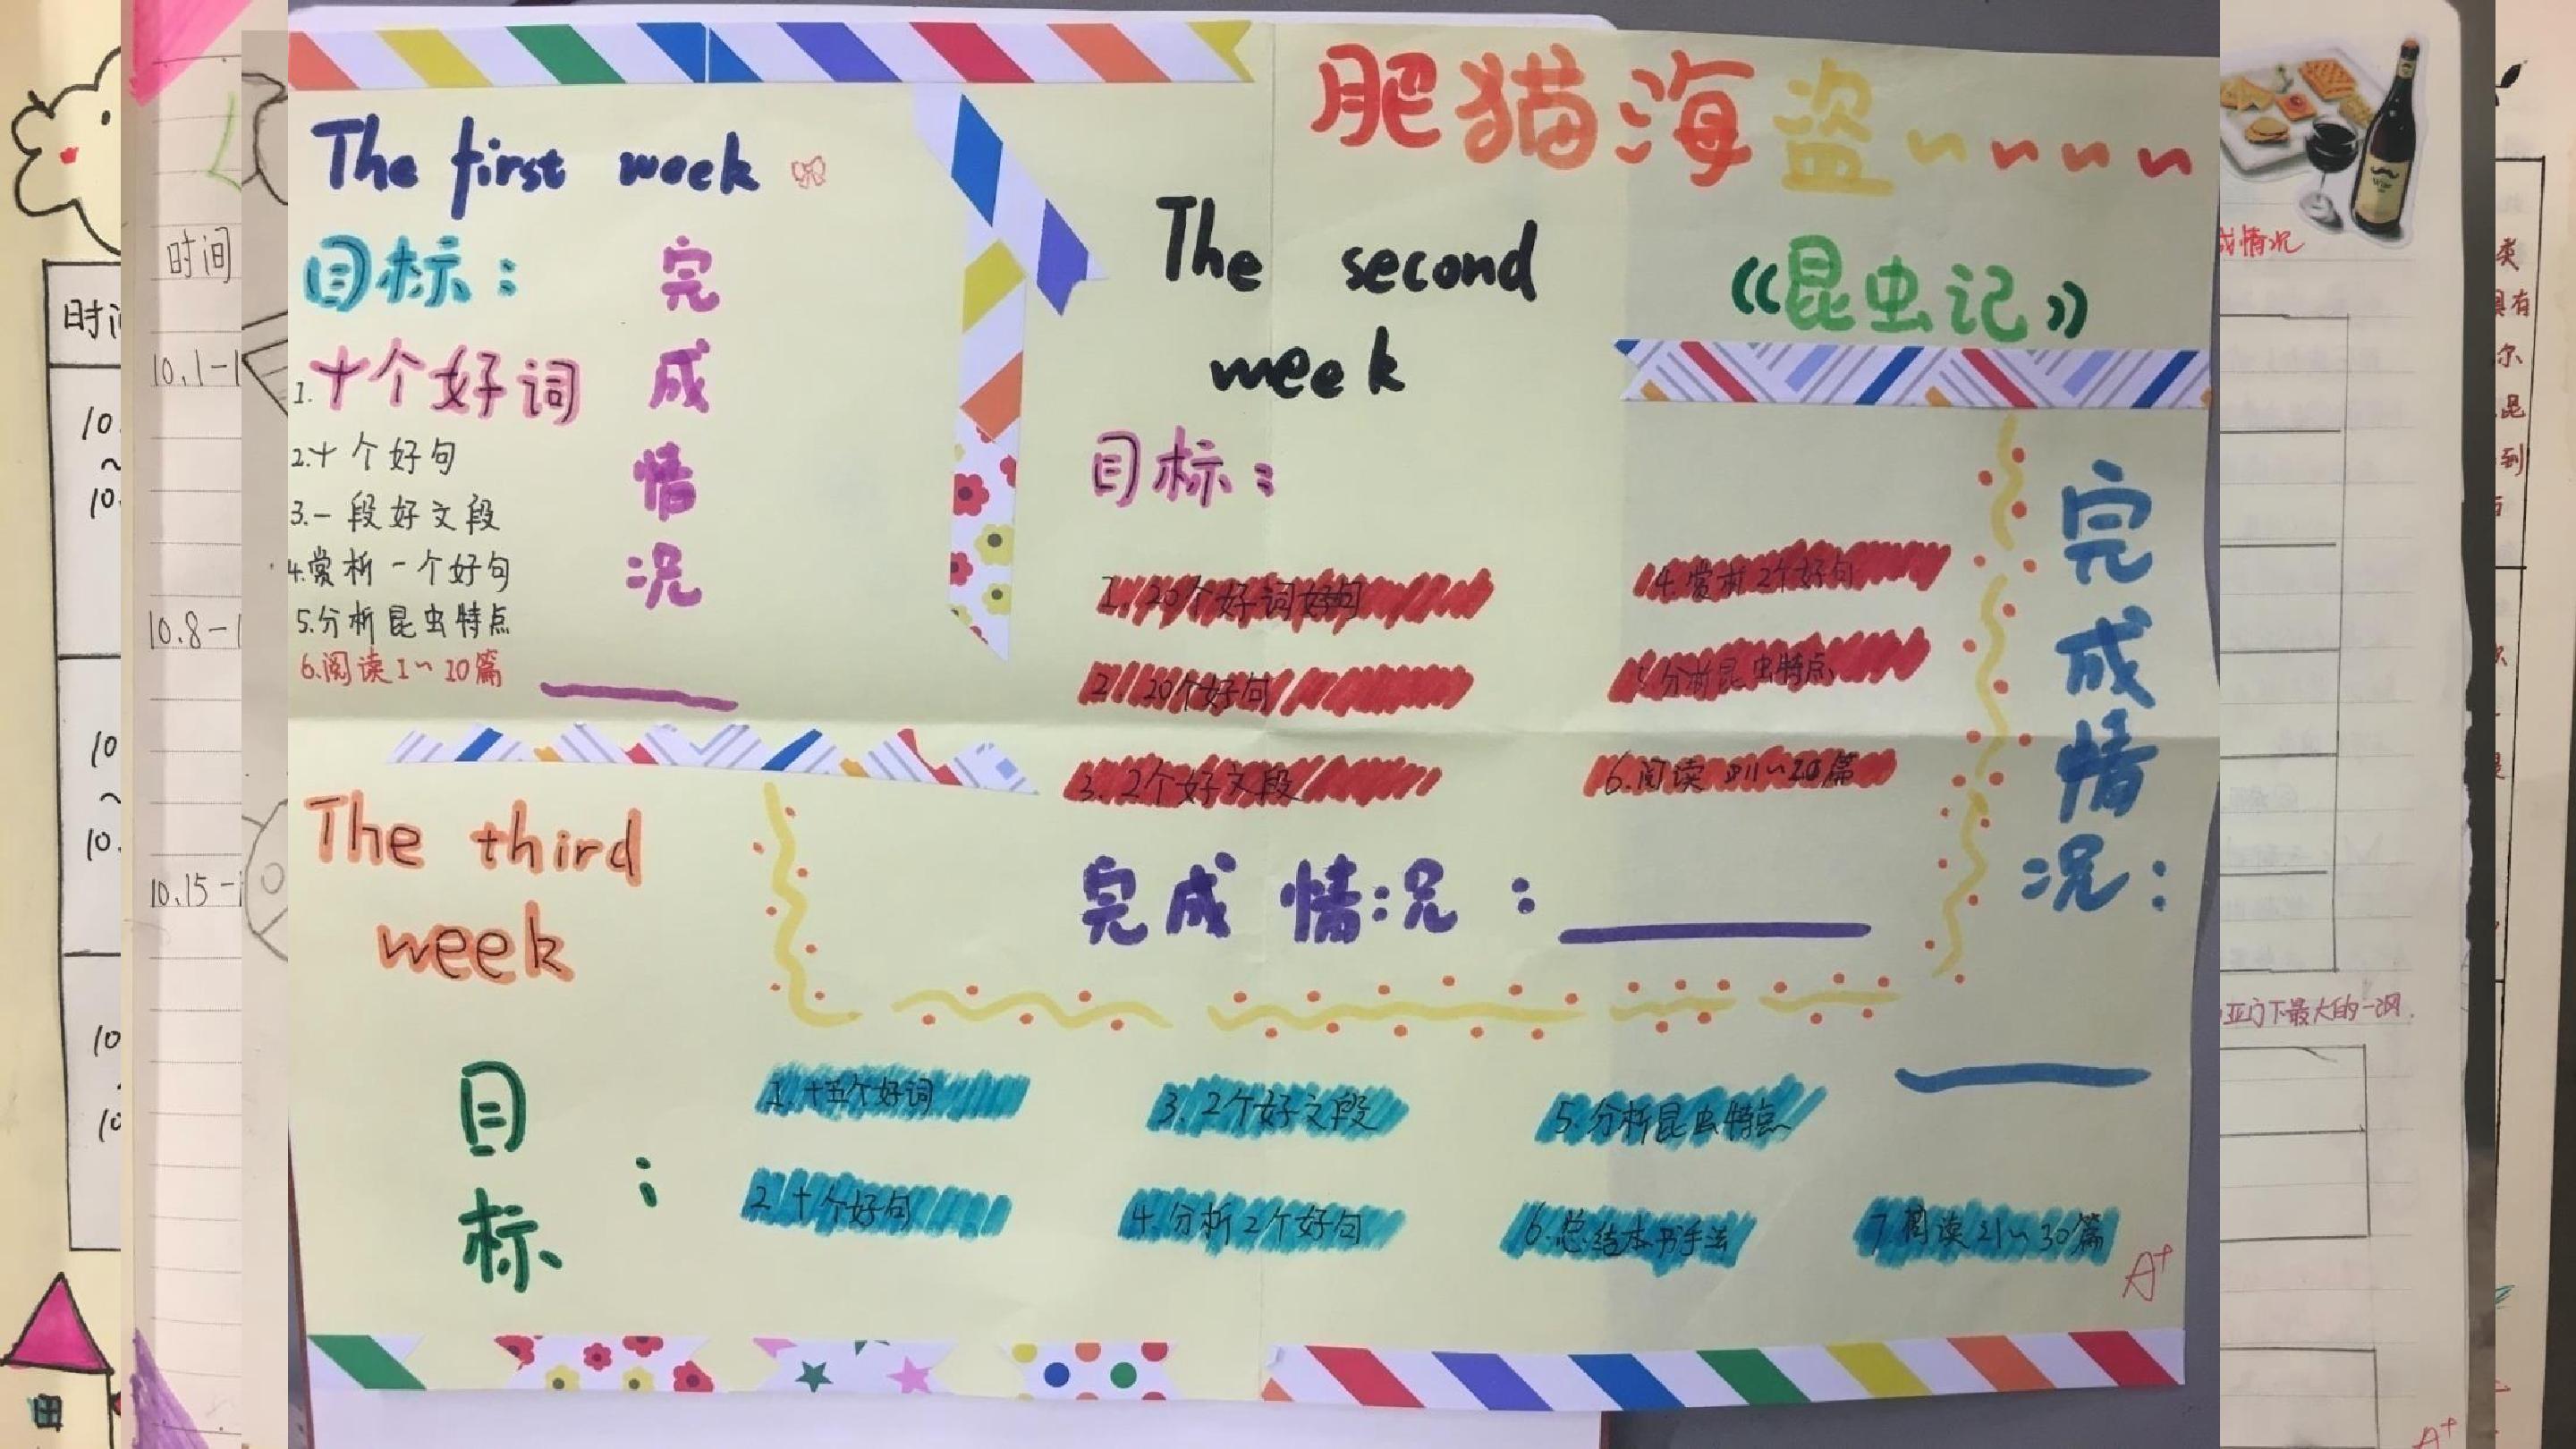 肥猫海盗~~~~
《昆虫记》
The first week
目标：
1.十个好词
2.十个好句
3.一段好文段
4.赏析一个好句
5.分析昆虫特点
6.阅读1~10篇
完成情况
The second
week
目标：
1. 20个好词好句
2. 20个好句
3. 2个好文段
4.赏析2个好句
5.分析昆虫特点
6.阅读11~20篇
完成情况：
The third
week
目标：
1.十五个好词
2.十个好句
3. 2个好文段
4.分析2个好句
5.分析昆虫特点
6.总结本书手法
7.阅读21~30篇
完成情况：
A+
时间
10.1-1
10.8-1
10.15-1
时间
10
~
10.
10
~
10.
10
~
10
成情况
亚门下最大的一纲.
类
具有
尔
昆
到
A+